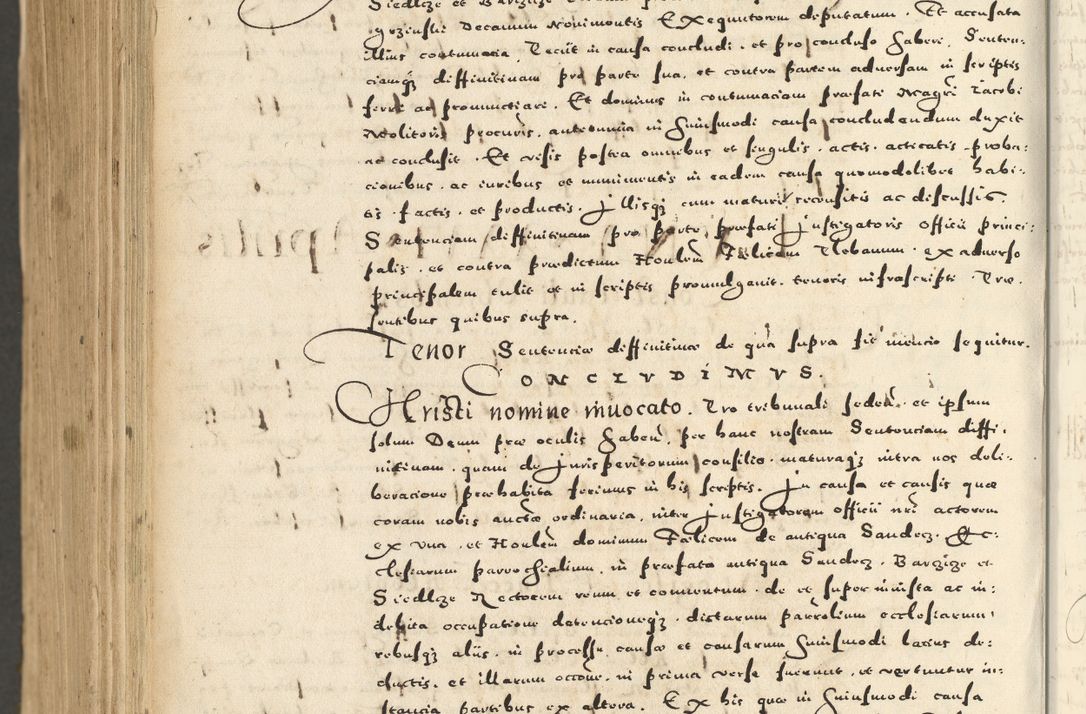 Siedlcze et Barczicze
gozinskii Decanum Novimontis Exequutorem deputatum. Et accusata
illius contumacia, Peciit in causa concludi. et pro concluso haberi, Senten:
ciamq3 diffinitivam pro parte sua, et contra partem adversam in scriptis
ferri ac pronunctiari. Et dominus in contumaciam præfati Magri Jacobi
Molitoris procuris. antedicta in huiusmodi causa concludendum duxit
ac conclusit. Et visis postea omnibus et singulis. actis. acticatis. proba:
cionibus. ac iuribus et munimentis in eadem causa quomodolibet habi:
tis. factis. et productis. Illisq3 cum maturit recensitis ac discussis.
Sentenciam diffinitivam pro parte præfati Instigatoris officii princi:
palis. et contra prædictum Honlem Fælicem Plebanum. ex adverso
principalem tulit et in scriptis promulgavit. tenoris infrascripti. Præ.
sentibus quibus supra.
Tenor Sentenciæ diffinitivæ de qua supra fit mencio sequitur.
CONCLVDIMVS.
Christi nomine invocato. Pro tribunali seden. et ipsum
solum Deum præ oculis haben. per hanc nostram Sentenciam diffi:
nitivam. quam de Jurisperitorum consilio. maturaq3 intra nos deli:
beracione præhabita ferimus in his scriptis. In causa et causis quæ
coram nobis auctæ ordinaria, inter Instigatorem officii nri actorem
ex una. et Honlem dominum Fælicem de antiqua Sandecz. Ec:
clesiarum parrochialium. in præfata antiqua Sandecz. Barczicze et
Siedlcze Rectorem reum et conventum. de et super iniusta ac in:
debita occupatione detencioneq3. dictarum parrolium ecclesiarum
rebusq3 aliis. in processu causæ et causarum huiusmodi latius de:
ductis. et illarum occone. in prima verse fuerunt. et vertuntur in:
stancia partibus ex altera. Ex his quæ in huiusmodi causa